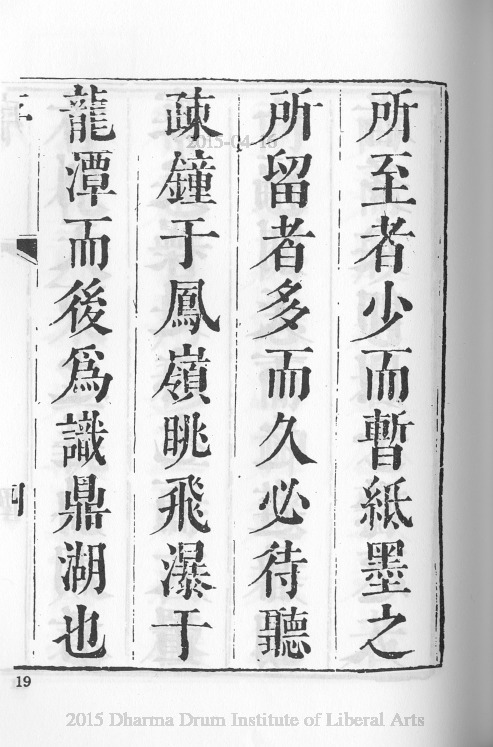 所至者少而暫紙墨之
所留者多而久必待聽
疎鐘于鳳嶺眺飛瀑于
龍潭而後爲識鼎湖也
19
2015-04-16
2015 Dharma Drum Institute of Liberal Arts